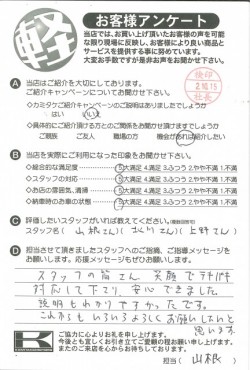 軽
お客様アンケート
当店では、お買い上げ頂いたお客様の声を可能な
限り現場に反映し、お客様により良い商品と
サービスを提供する事に努めています。
大変お手数ですが是非お声をお聞かせ下さい。
検印
社長
A 当店はご紹介を大切にしてあります。
ご紹介キャンペーンについてお聞かせ下さい。
◇カミタケご紹介キャンペーンのご説明はありましたでしょうか
はい いいえ
◇具体的にご紹介頂ける方とのご関係をお聞かせ頂けますでしょうか
ご親戚 ご友人 職場の方 機会があれば紹介したい
B 当店を実際にご利用になった印象をお聞かせ下さい。
◇総合的な満足度 5大満足 4.満足 3.ふつう 2.やや不満 1.不満
◇スタッフの対応 5大満足 4.満足 3.ふつう 2.やや不満 1.不満
◇お店の雰囲気、清掃 5大満足 4.満足 3.ふつう 2.やや不満 1.不満
◇納車時のお車の状態 5大満足 4.満足 3.ふつう 2.やや不満 1.不満
C 評価したいスタッフがいれば教えてください。
スタッフ名( 山根さん )( 北川さん )( 上野さん )
D 担当させて頂きましたスタッフへのご指摘、ご指導メッセージを
お願いします。応援メッセージもぜひお願いします。
スタッフの皆さん 笑顔でテキパキ
対応して下さり、安心できました。
説明もわかりやすかったです。
これからもいろいろよろしくお願いしたいと
思います。
ご協力に心よりお礼を申し上げます。
今後とも宜しくお引き立てご愛顧の程お願い申し上げます。
またのご来店を心からお待ちしております。
担当( 山根 )